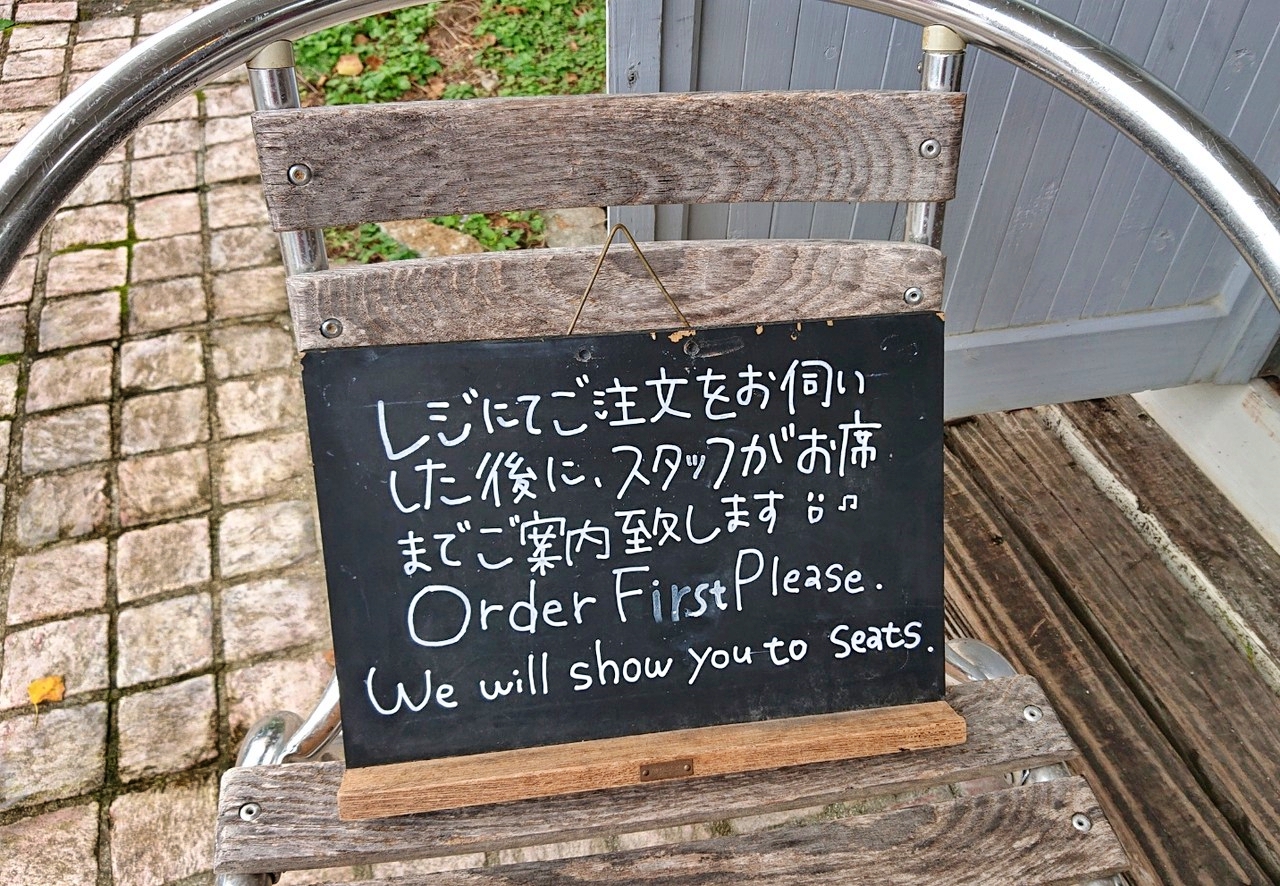 レジにてご注文をお伺い
した後に、スタッフがお席
までご案内致します♫
Order First Please.
We will show you to seats.